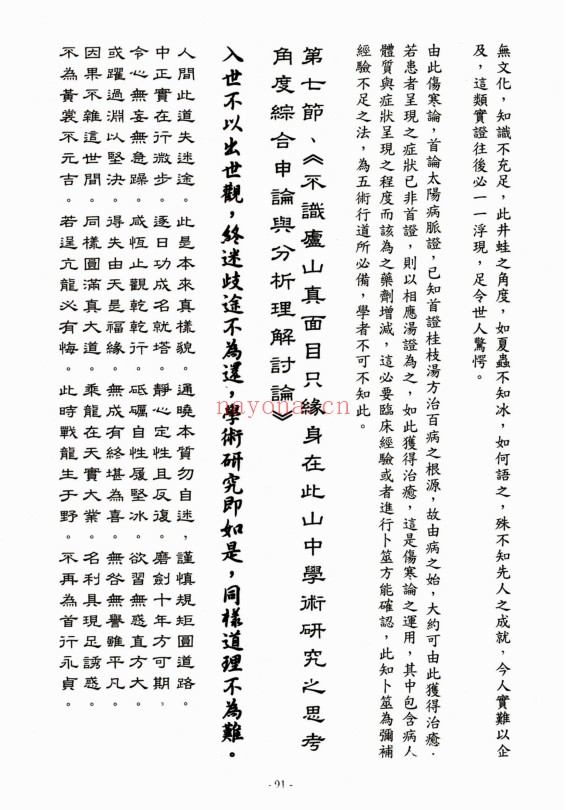 無文化，知識不充足，此井蛙之角度，如夏蟲不知冰，如何語之，殊不知先人之成就，今人實難以企
及，這類實證往後必一一浮現，足令世人驚愕。
由此傷寒論，首論太陽病脈證，已知首證桂枝湯方治百病之根源，故由病之始，大約可由此獲得治癒．
若患者呈現之症狀已非首證，則以相應湯證為之，如此獲得治癒，這是傷寒論之運用，其中包含病人
體質與症狀呈現之程度而該為之藥劑增減，這必要臨床經驗或者進行卜筮方能確認，此知卜筮為彌補
經驗不足之法，為五術行道所必備，學者不可不知此。
第七節、《不識廬山真面目只緣身在此山中學術研究之思考
角度綜合申論與分析理解討論》
入世不以出世觀，終迷歧途不為還，學術研究即如是，同樣道理不為難。
人間此道失迷途。此是本來真樣貌。通曉本質勿自迷，謹慎規矩圓道路。
中正實在行微步。逐日功成名就塔。靜心定性且反復。磨劍十年方可期，
令心無妄無急躁。咸恆止觀乾乾行。砥礪自性履堅冰。欲習無惑直方大。
或躍過淵以堅決。得失由天是福緣。無成有終堪為喜。無咎無譽雖平凡。
因果不離這世間。同樣圓滿真大道。乘龍在天實大業。名利具現足誘惑。
不為黃裳不元吉。若逞亢龍必有悔。此時戰龍生于野。不再為首行永貞。
- 91 -
nayona.cn